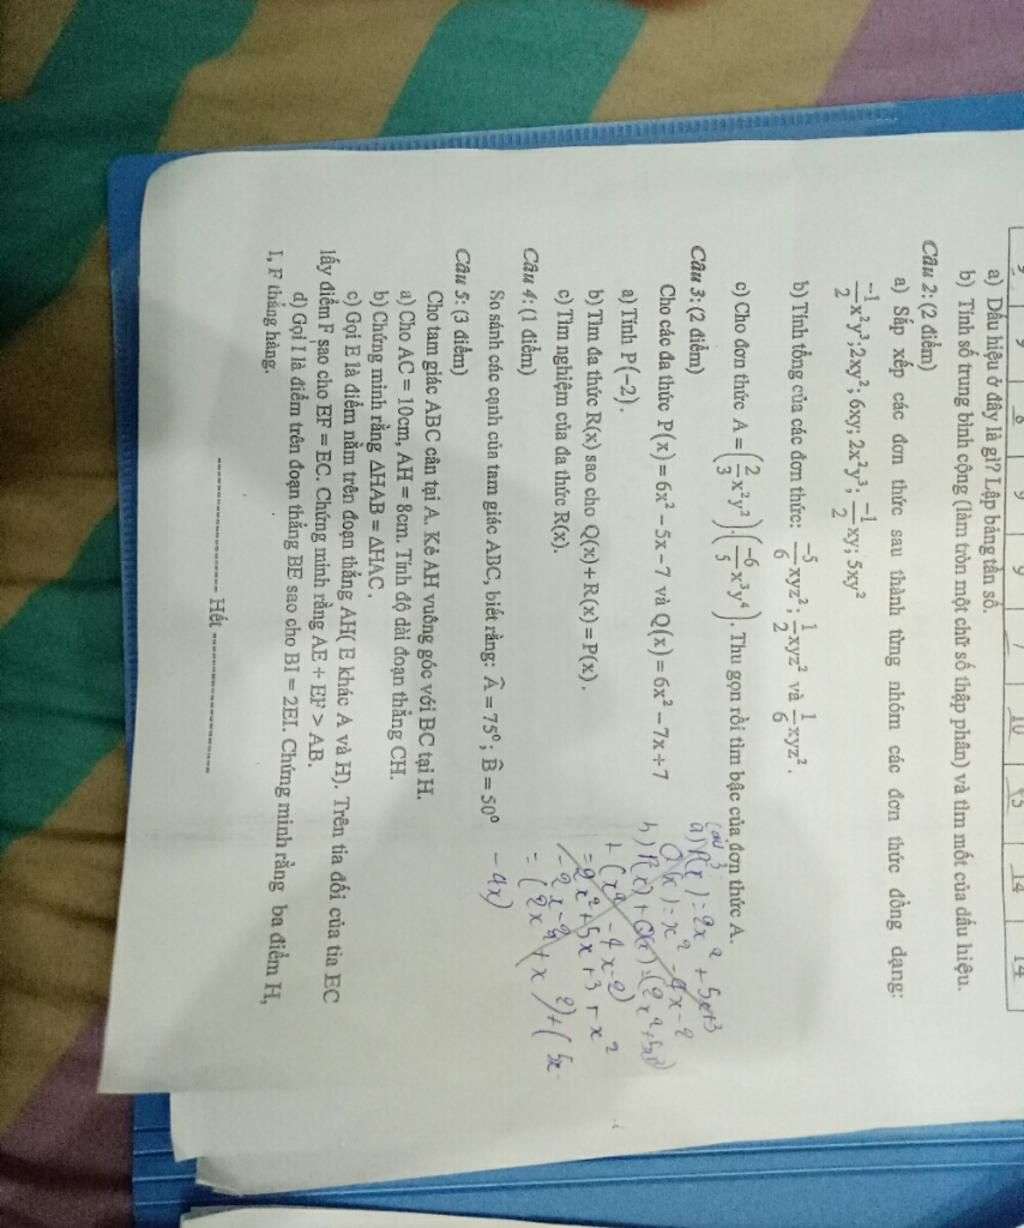 9 9 8 9 9 7 10 14 14
a) Dấu hiệu ở đây là gì? Lập bảng tần số.
b) Tính số trung bình cộng (làm tròn một chữ số thập phân) và tìm mốt của dấu hiệu.
Câu 2: (2 điểm)
a) Sắp xếp các đơn thức sau thành từng nhóm các đơn thức đồng dạng:
-1/2 x²y³; 2xy²; 6xy; 2x²y³; -1/2 xy; 5xy²
b) Tính tổng của các đơn thức: -5/6 xyz²; 1/2 xyz² và 1/6 xyz².
c) Cho đơn thức A = (2/3 x²y³).(-6/5 x³y⁴). Thu gọn rồi tìm bậc của đơn thức A.
Câu 3: (2 điểm)
Cho các đa thức P(x) = 6x² – 5x – 7 và Q(x) = 6x² – 7x + 7
a) Tính P(–2).
b) Tìm đa thức R(x) sao cho Q(x) + R(x) = P(x).
c) Tìm nghiệm của đa thức R(x).
Câu 4: (1 điểm)
So sánh các cạnh của tam giác ABC, biết rằng: Â = 75⁰; B̂ = 50⁰
Câu 5: (3 điểm)
Cho tam giác ABC cân tại A. Kẻ AH vuông góc với BC tại H.
a) Cho AC = 10cm, AH = 8cm. Tính độ dài đoạn thẳng CH.
b) Chứng minh rằng ΔHAB = ΔHAC.
c) Gọi E là điểm nằm trên đoạn thẳng AH( E khác A và H). Trên tia đối của tia EC
lấy điểm F sao cho EF = EC. Chứng minh rằng AE + EF > AB.
d) Gọi I là điểm trên đoạn thẳng BE sao cho BI = 2EI. Chứng minh rằng ba điểm H,
I, F thẳng hàng.
-------------------- Hết --------------------
Câu 3:
a) P(x) = 2x² + 5x + 3
Q(x) = x² – 4x – 2
b) P(x) + Q(x) = (2x² + 5x
+ (x² – 4x – 2)
= 2x² + 5x + 3 + x²
– 4x – 2
= (2x² + x²) + (5x
– 4x)